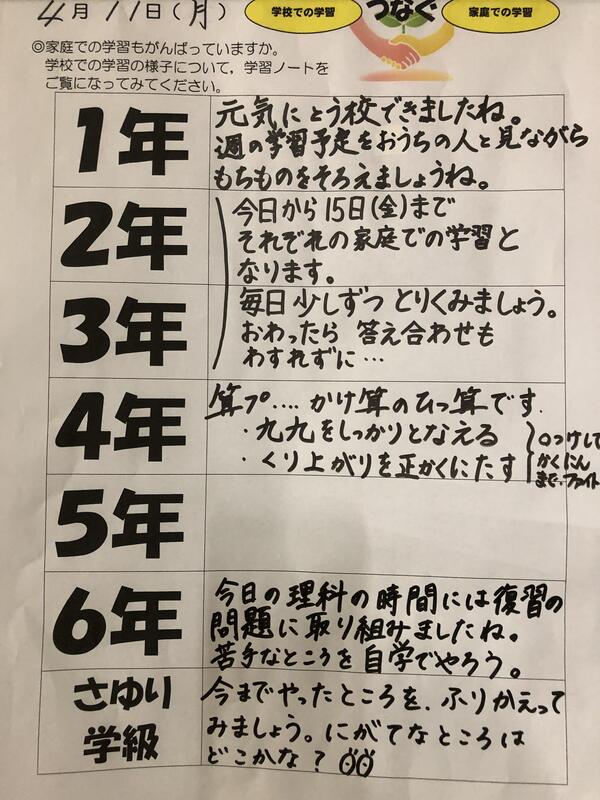 4月11日(月)
学校での学習
つなぐ
家庭での学習
◎家庭での学習もがんばっていますか。
学校での学習の様子について，学習ノートを
ご覧になってみてください。
1年
元気にとう校できましたね。
週の学習予定をおうちの人と見ながら
もちものをそろえましょうね。
2年
今日から15日(金)まで
それぞれの家庭での学習と
なります。
3年
毎日少しずつ とりくみましょう。
おわったら 答え合わせも
わすれずに…
4年
算プ‥‥かけ算のひっ算です.
・九九をしっかりとなえる
・くり上がりを正かくにたす
○つけして
かくにん
まで・ファイト
5年
6年
今日の理科の時間には復習の
問題に取り組みましたね。
苦手なところを自学でやろう。
さゆり
学級
今までやったところを、ふりかえって
みましょう。にがてなところは
どこかな？